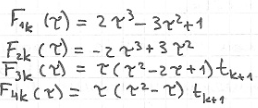 F₁ₖ(τ) = 2τ³ - 3τ² + 1
F₂ₖ(τ) = -2τ³ + 3τ²
F₃ₖ(τ) = τ(τ² - 2τ + 1) tₖ₊₁
F₄ₖ(τ) = τ(τ² - τ) tₖ₊₁